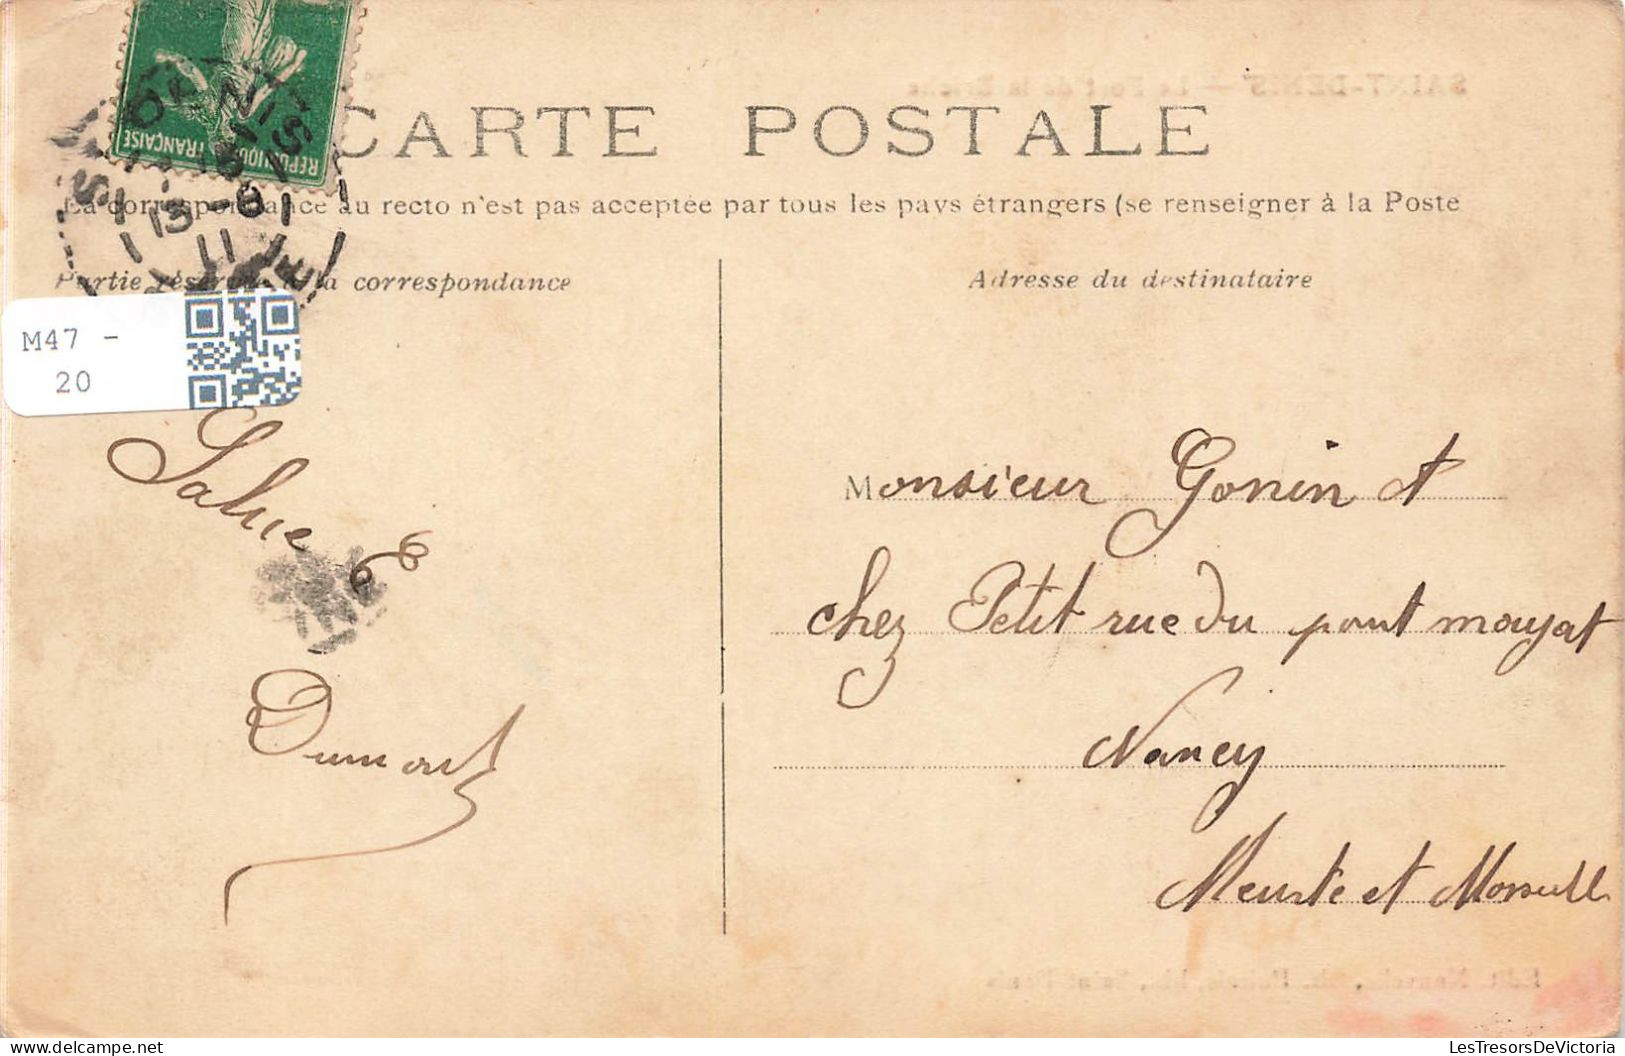 CARTE POSTALE
La correspondance au recto n'est pas acceptée par tous les pays étrangers (se renseigner à la Poste
Partie réservée à la correspondance
Adresse du destinataire
REPUBLIQUE FRANÇAISE
13 -9
11
M47 -
20
Salue
Dumont
Monsieur Gonin A
chez Petit rue du pont mouyat
Nancy
Meurte et Morsell
SAINT-DENIS — Le Fort de la Briche
LesTresorsDeVictoria